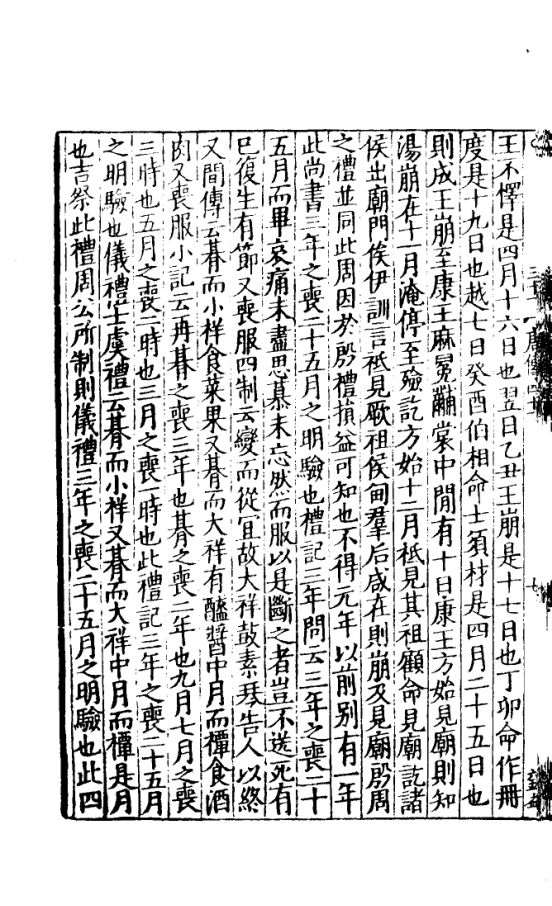 王不懌是四月十六日也翌日乙丑王崩是十七日也丁卯命作冊
度是十九日也越七日癸酉伯相命士須材是四月二十五日也
則成王崩至康王麻冕黼裳中間有十日康王方始見廟則知
湯崩在十一月淹停至殮訖方始十二月祗見其祖顧命見廟訖諸
侯出廟門俟伊訓言祗見厥祖侯甸羣后咸在則崩及見廟殷周
之禮並同此周因於殷禮損益可知也不得元年以前別有一年
此尚書三年之喪二十五月之明驗也禮記三年問云三年之喪二十
五月而畢哀痛未盡思慕未忘然而服以是斷之者豈不送死有
已復生有節又喪服四制云變而從宜故大祥鼓素琴告人以終
又間傳云朞而小祥食菜果又朞而大祥有醯醬中月而禫食酒
肉又喪服小記云再朞之喪三年也朞之喪二年也九月七月之喪
三時也五月之喪二時也三月之喪一時也此禮記三年之喪二十五月
之明驗也儀禮士虞禮云朞而小祥又朞而大祥中月而禫是月
也吉祭此禮周公所制則儀禮三年之喪二十五月之明驗也此四